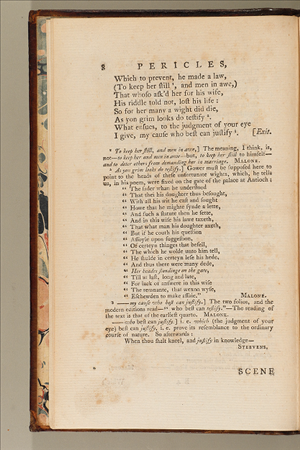 8 PERICLES,
Which to prevent, he made a law,
(To keep her still ², and men in awe,)
That whoso ask'd her for his wife,
His riddle told not, lost his life:
So for her many a wight did die,
As yon grim looks do testify ³.
What ensues, to the judgment of your eye
I give, my cause who best can justify ⁴. [Exit.
² To keep her still, and men in awe,] The meaning, I think, is,
not—to keep her and men in awe—but, to keep her still to himself—
and to deter others from demanding her in marriage. MALONE.
³ As yon grim looks do testify.] Gower must be supposed here to
point to the heads of those unfortunate wights, which, he tells
us, in his poem, were fixed on the gate of the palace at Antioch:
" The fader whan he understood
" That thei his doughter thus besought,
" With all his wit he cast and sought
" Howe that he mighte fynde a lette,
" And such a statute then he sette,
" And in this wise his lawe taxeth,
" That what man his doughter axeth,
" But if he couth his question
" Assoyle upon suggestion,
" Of certeyn thinges that befell,
" The which he wolde unto him tell,
" He shulde in certeyn lese his hede,
" And thus there were many dede,
" Her heades stondinge on the gate,
" Till at last, long and late,
" For lack of answere in this wise
" The remnante, that wexon wyse,
" Eschewden to make assaie." MALONE.
⁴ —my cause who best can justify.] The two folios, and the
modern editions read—" who best can justify."—The reading of
the text is that of the earliest quarto. MALONE.
—who best can justify.] i. e. which (the judgment of your
eye) best can justify, i. e. prove its resemblance to the ordinary
course of nature. So afterwards:
When thou shalt kneel, and justify in knowledge—
STEEVENS.
SCENE